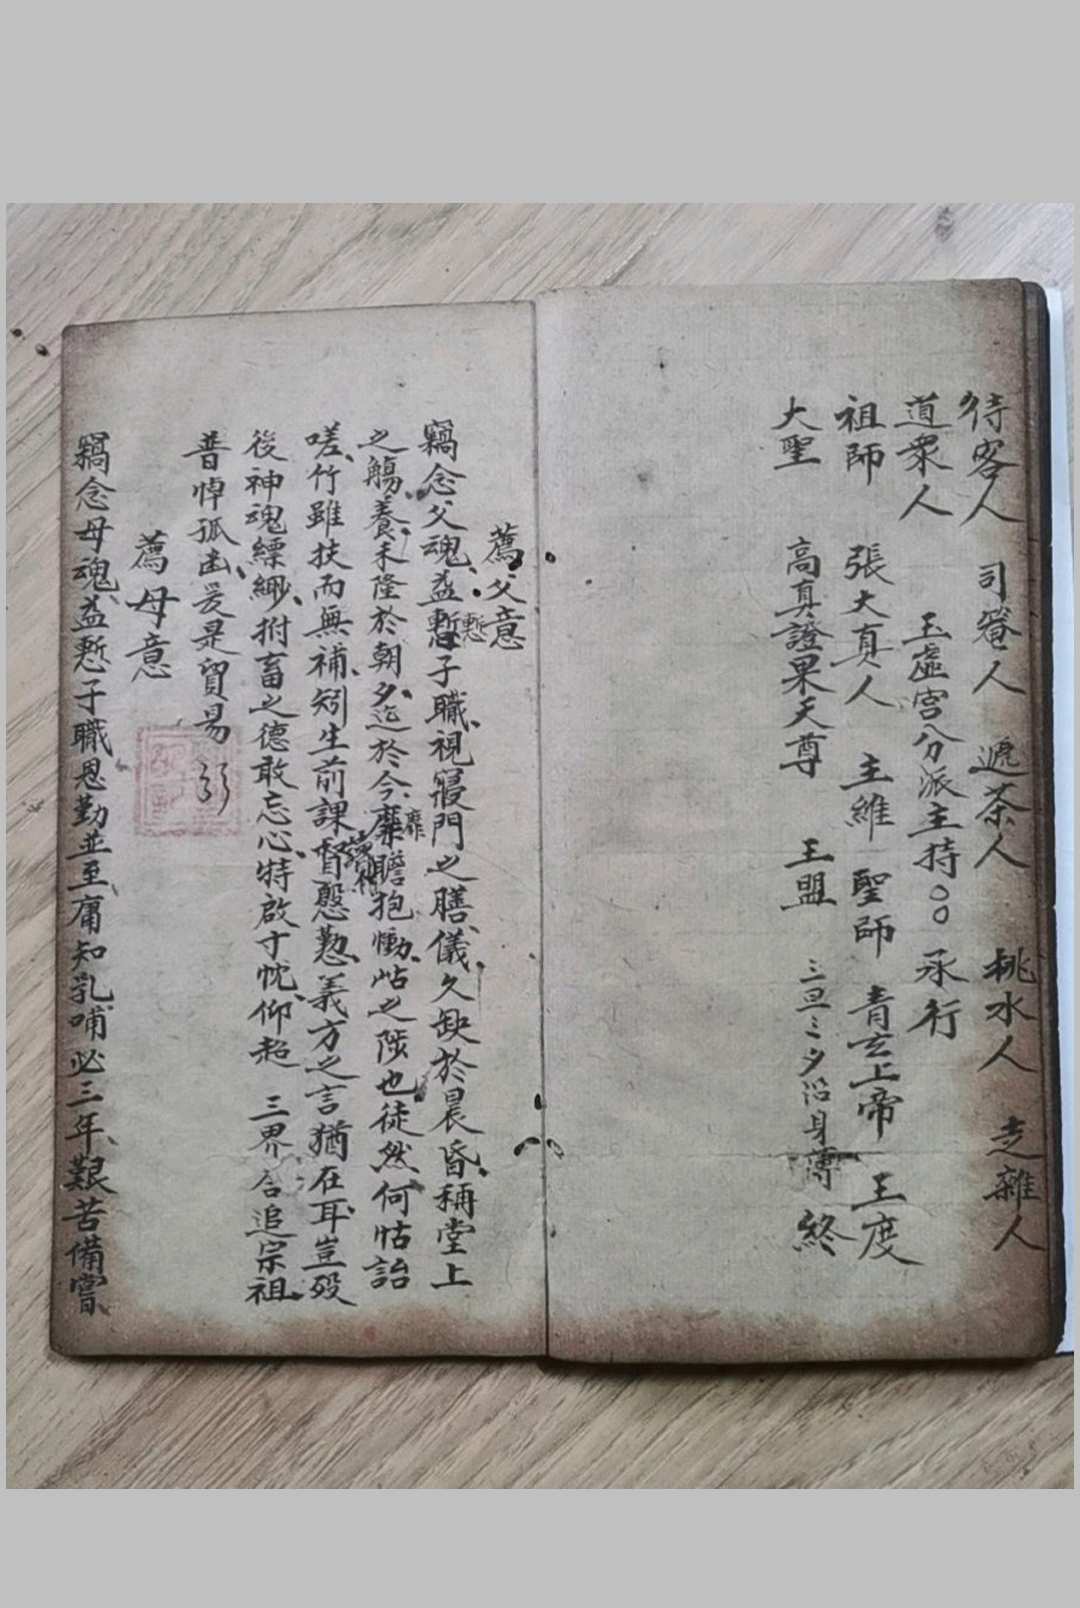 待客人 司 人 遞茶人 桃水人 走雜人
道衆人 玉虛宮分派主持〇〇承行
祖師 張大真人 主維 聖師 青玄上帝 王度
大聖 高真證果天尊 王盟 三旦三夕沿身 終
薦父意
竊念父魂益慙慙子職視寢門之膳儀久缺於晨昏稱堂上
之觴養未隆於朝夕迄於今靡靡瞻抱慟岵之陟也徒然何怙詒
嗟竹雖扶而無補矧生前課督慇懃義方之言猶在耳豈歿
後神魂縹緲拊畜之德敢忘心特啟寸忱仰起 三界合追宗祖
普悼孤幽爰是貿易
薦母意
竊念母魂益慙子職恩勤並至庸知乳哺必三年艱苦備嘗